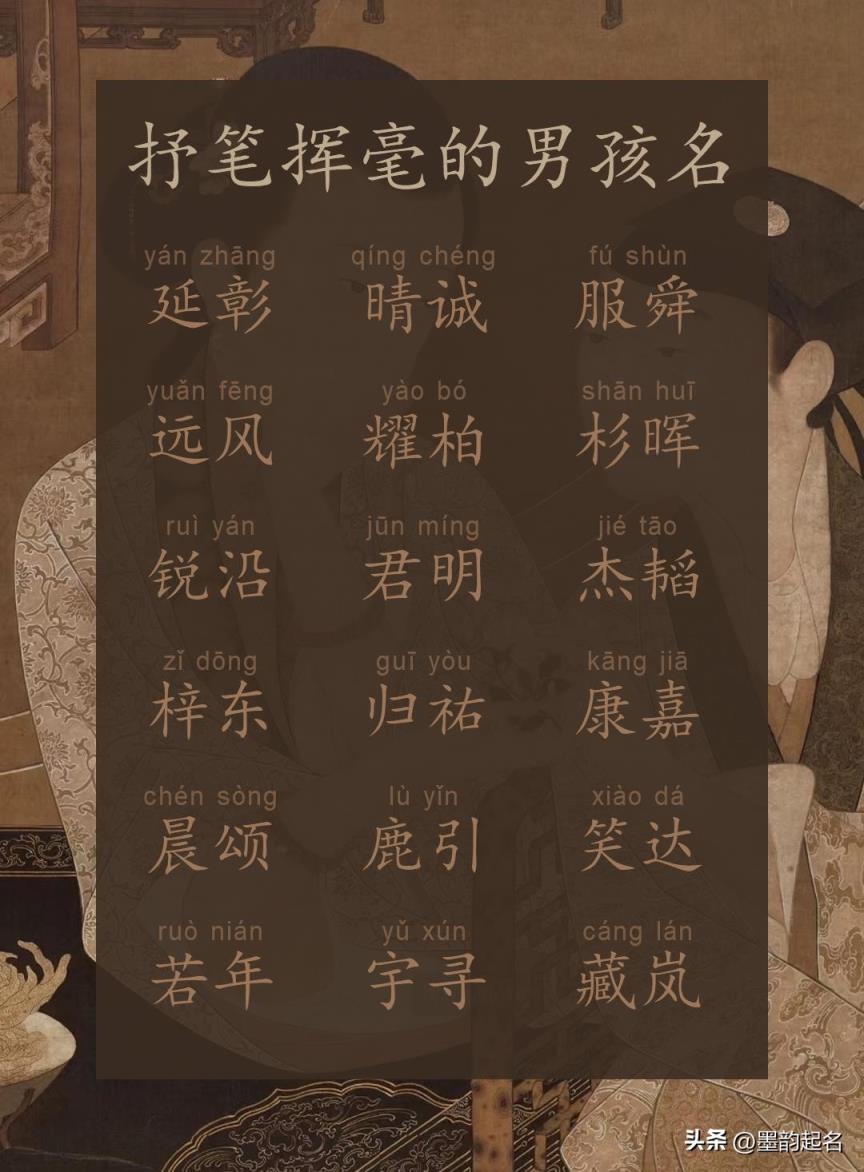 抒笔挥毫的男孩名
yán zhāng qíng chéng fú shùn
延彰 晴诚 服舜
yuǎn fēng yào bó shān huī
远风 耀柏 杉晖
ruì yán jūn míng jié tāo
锐沿 君明 杰韬
zǐ dōng guī yòu kāng jiā
梓东 归祐 康嘉
chén sòng lù yǐn xiào dá
晨颂 鹿引 笑达
ruò nián yǔ xún cáng lán
若年 宇寻 藏岚
头条 @墨韵起名